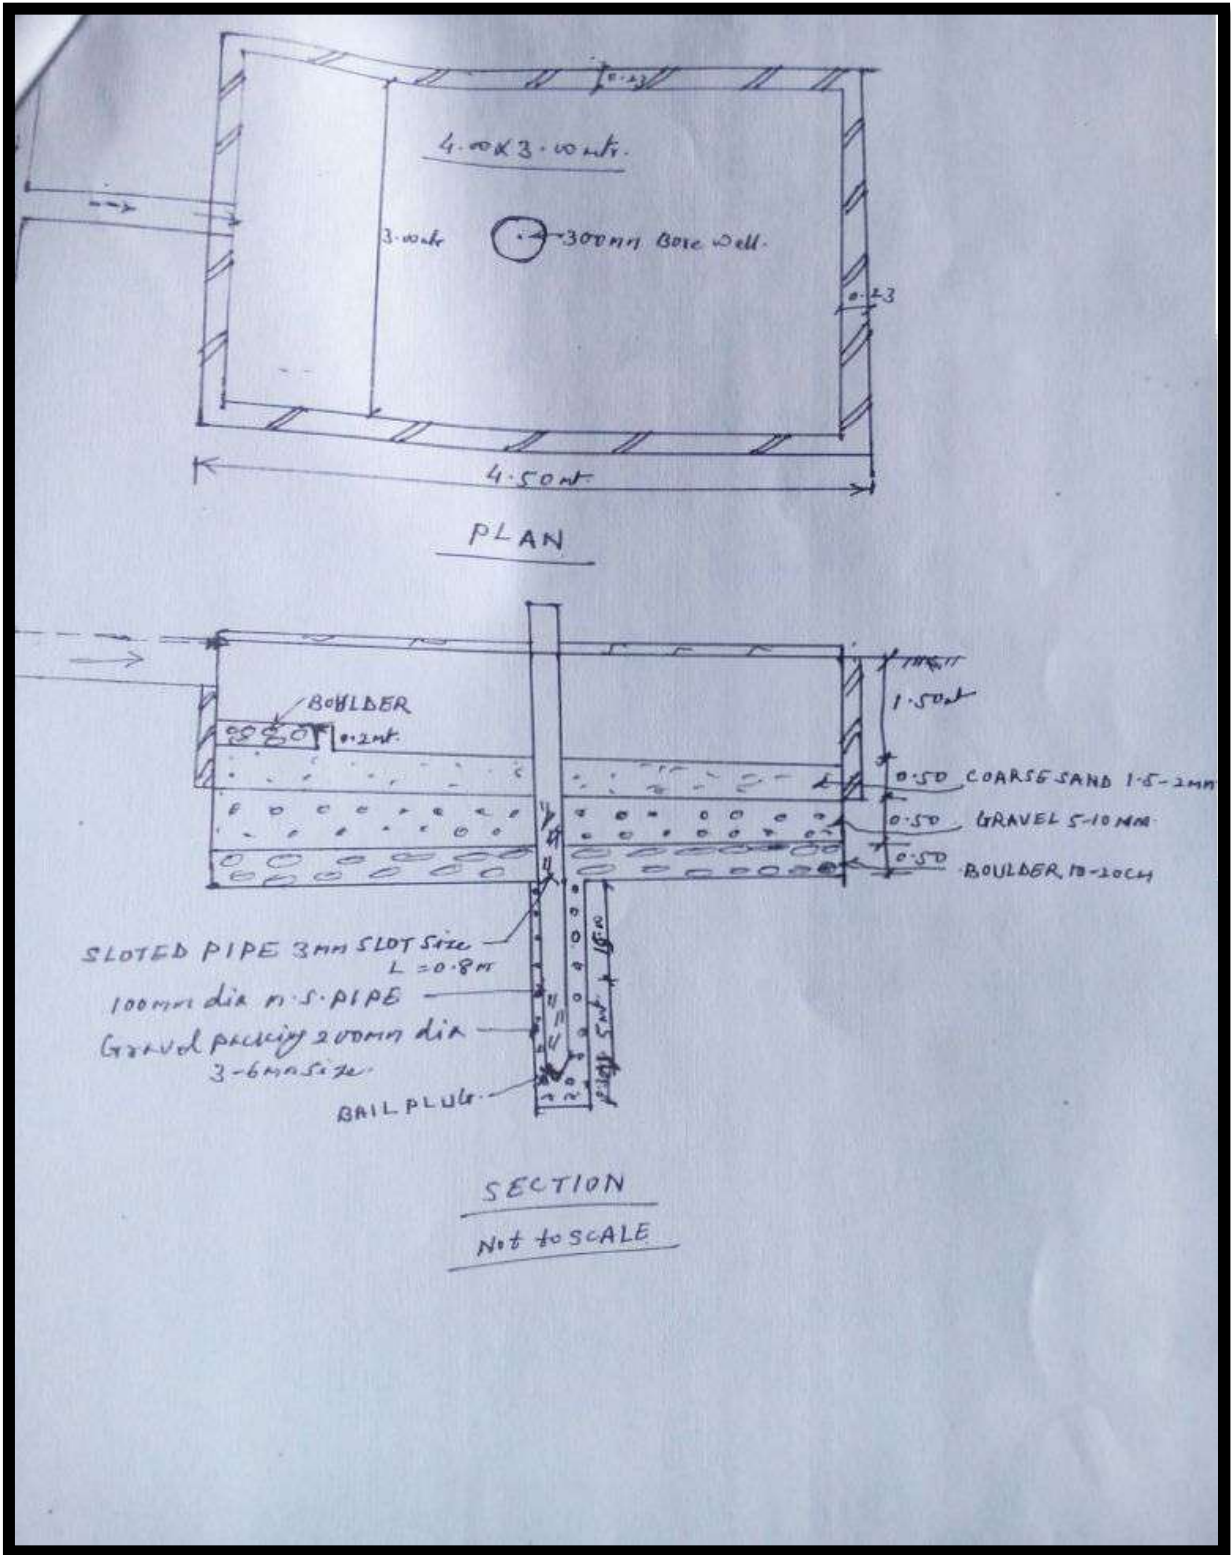 0.23
4.00X3.00mtr.
3.00mtr
300mm Bore Well.
0.23
4.50mt.
PLAN
BOULDER
0.2mt.
1.50mt
0.50 COARSE SAND 1.5-2MM
0.50 GRAVEL 5-10MM
0.50 BOULDER 10-20CM
SLOTED PIPE 3mm SLOT Size
L=0.8m
100mm dia m.s. PIPE
Gravel packing 200mm dia
3-6mm Size.
BAIL PLUG.
5 mt
SECTION
Not to SCALE